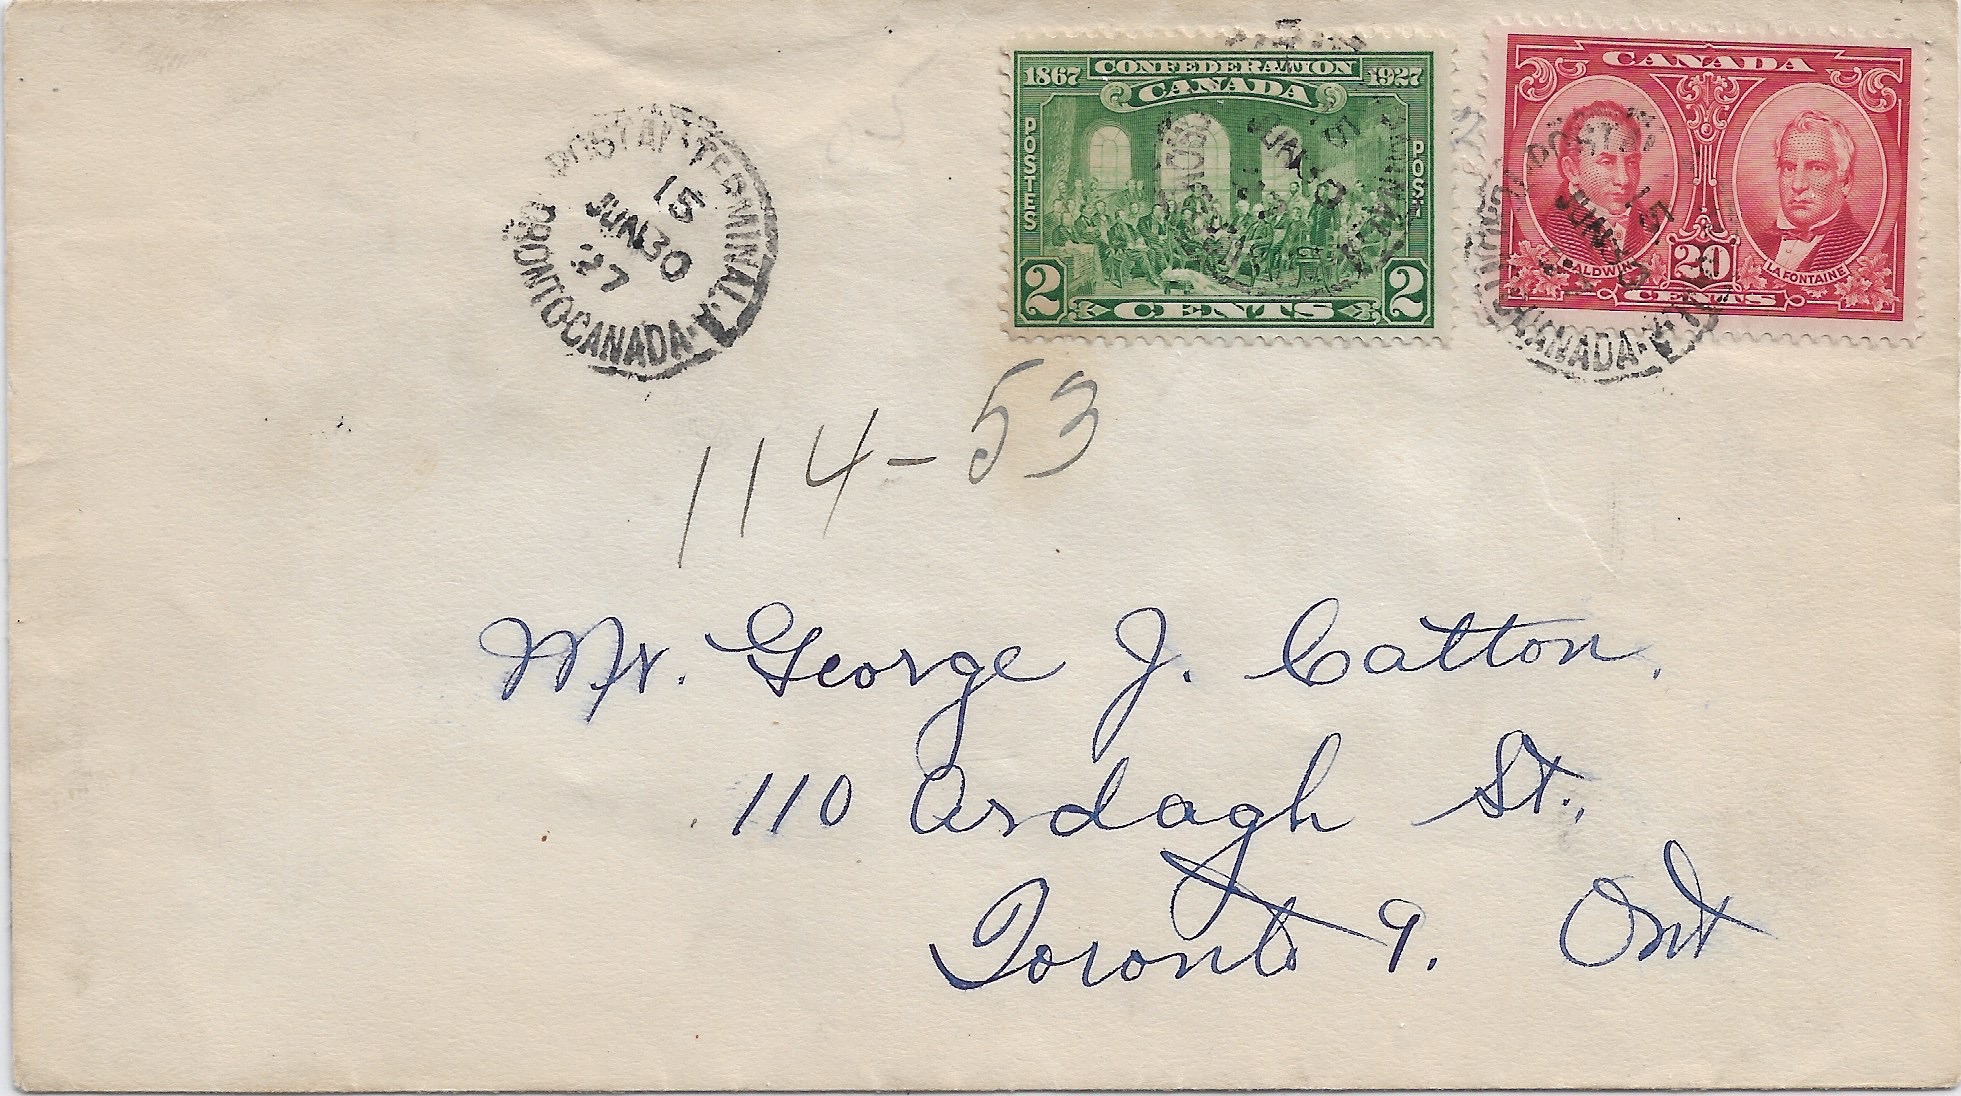 1867 CONFEDERATION 1927
CANADA
POSTES
POST
2 CENTS 2
CANADA
BALDWIN
20
LAFONTAINE
CENTS
POSTAL TERMINAL A
15
JUN 30
27
TORONTO CANADA
POSTAL
15
JUN 30
CANADA
114-53
Mr. George J. Catton.
110 Ardagh St.,
Toronto 9. Ont